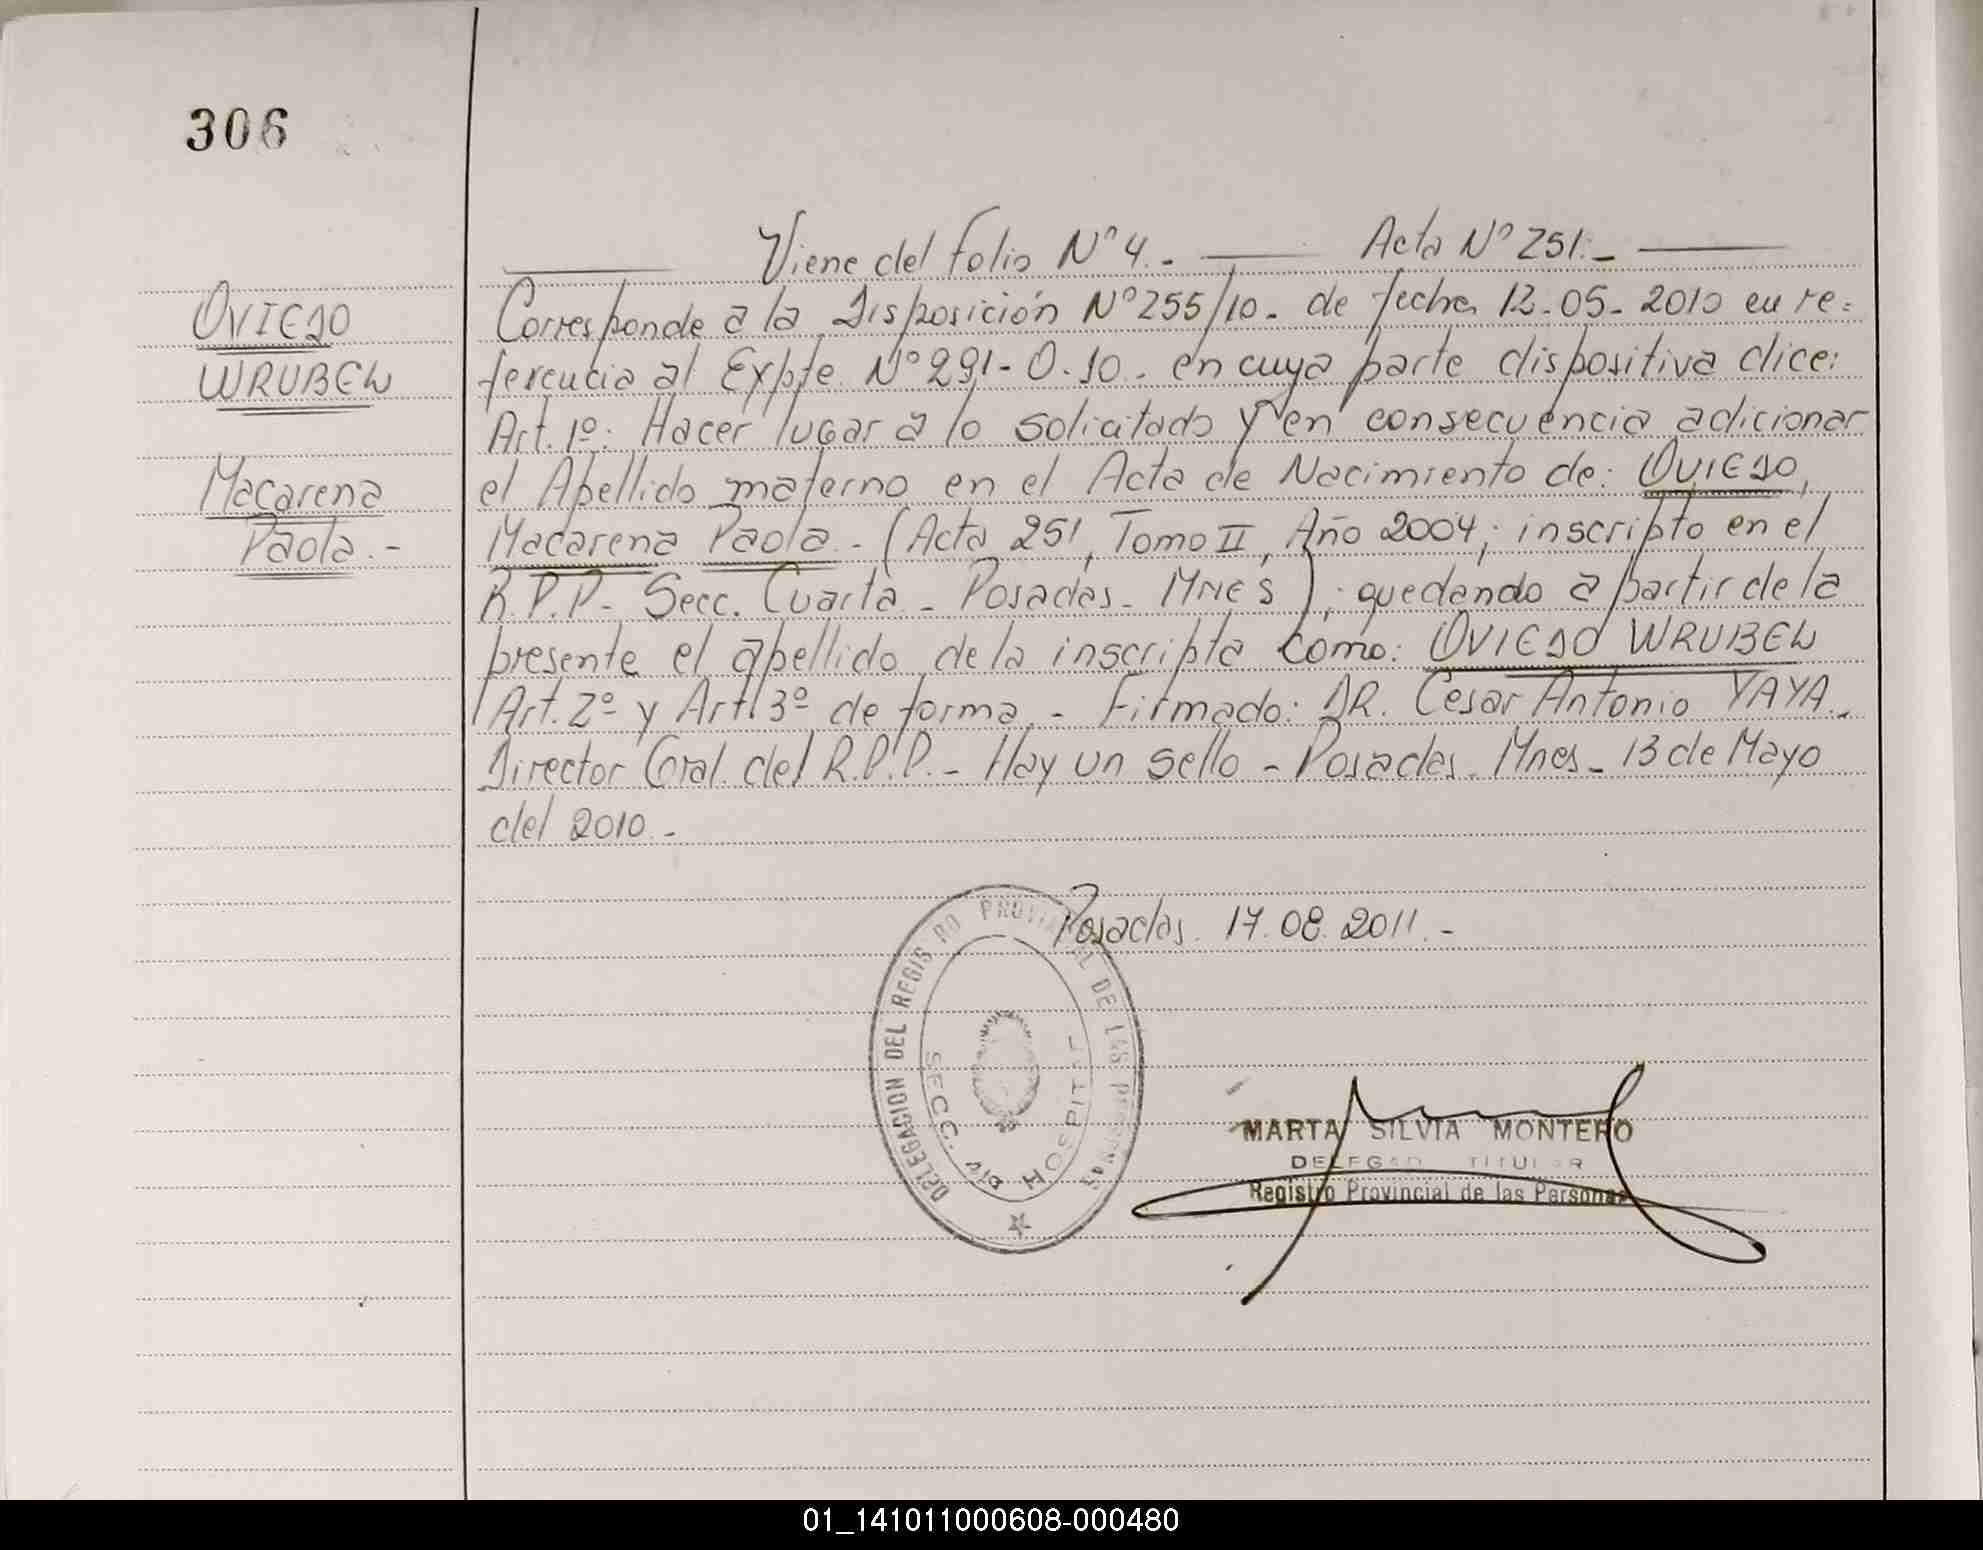 306
Viene del Folio Nº 4.- Acta Nº 251.-
OVIEDO
WRUBEL
Macarena
Paola.-
Corresponde a la Disposición Nº 255/10. de fecha 13-05-2010 en re=
ferencia al Expte Nº 291-O.10. en cuya parte dispositiva dice:
Art. 1º: Hacer lugar a lo solicitado y en consecuencia adicionar
el Apellido materno en el Acta de Nacimiento de: OVIEDO,
Macarena Paola.- (Acta 251, Tomo II, Año 2004; inscripto en el
R.P.P- Secc. Cuarta - Posadas - Mnes); quedando a partir de la
presente el apellido de la inscripta como: OVIEDO WRUBEL
Art. 2º y Art 3º de forma.- Firmado: DR. Cesar Antonio YAYA.
Director Gral. del R.P.P.- Hay un sello - Posadas. Mnes- 13 de Mayo
del 2010.-
Posadas. 17.08.2011.-
DELEGACION DEL REGISTRO PROVINCIAL DE LAS PERSONAS
SECC. 4ta HOSPITAL
MARTA SILVIA MONTERO
DELEGADA TITULAR
Registro Provincial de las Personas
01_141011000608-000480